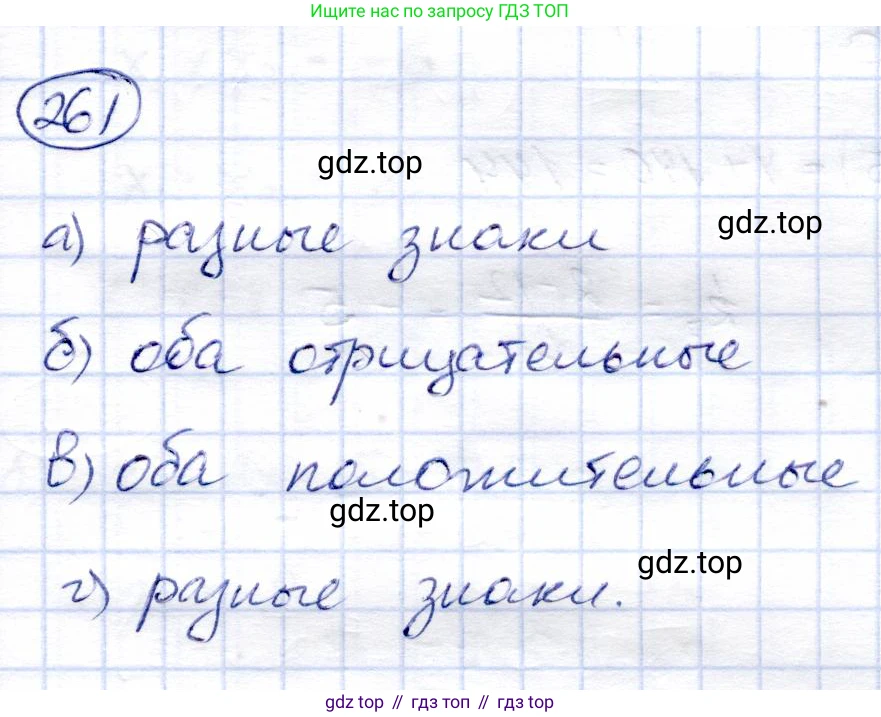 Ищите нас по запросу ГДЗ ТОП
261
gdz.top
а) разные знаки
gdz.top
б) оба отрицательные
в) оба положительные
gdz.top
г) разные знаки.
gdz.top
gdz top // гдз топ // gdz top